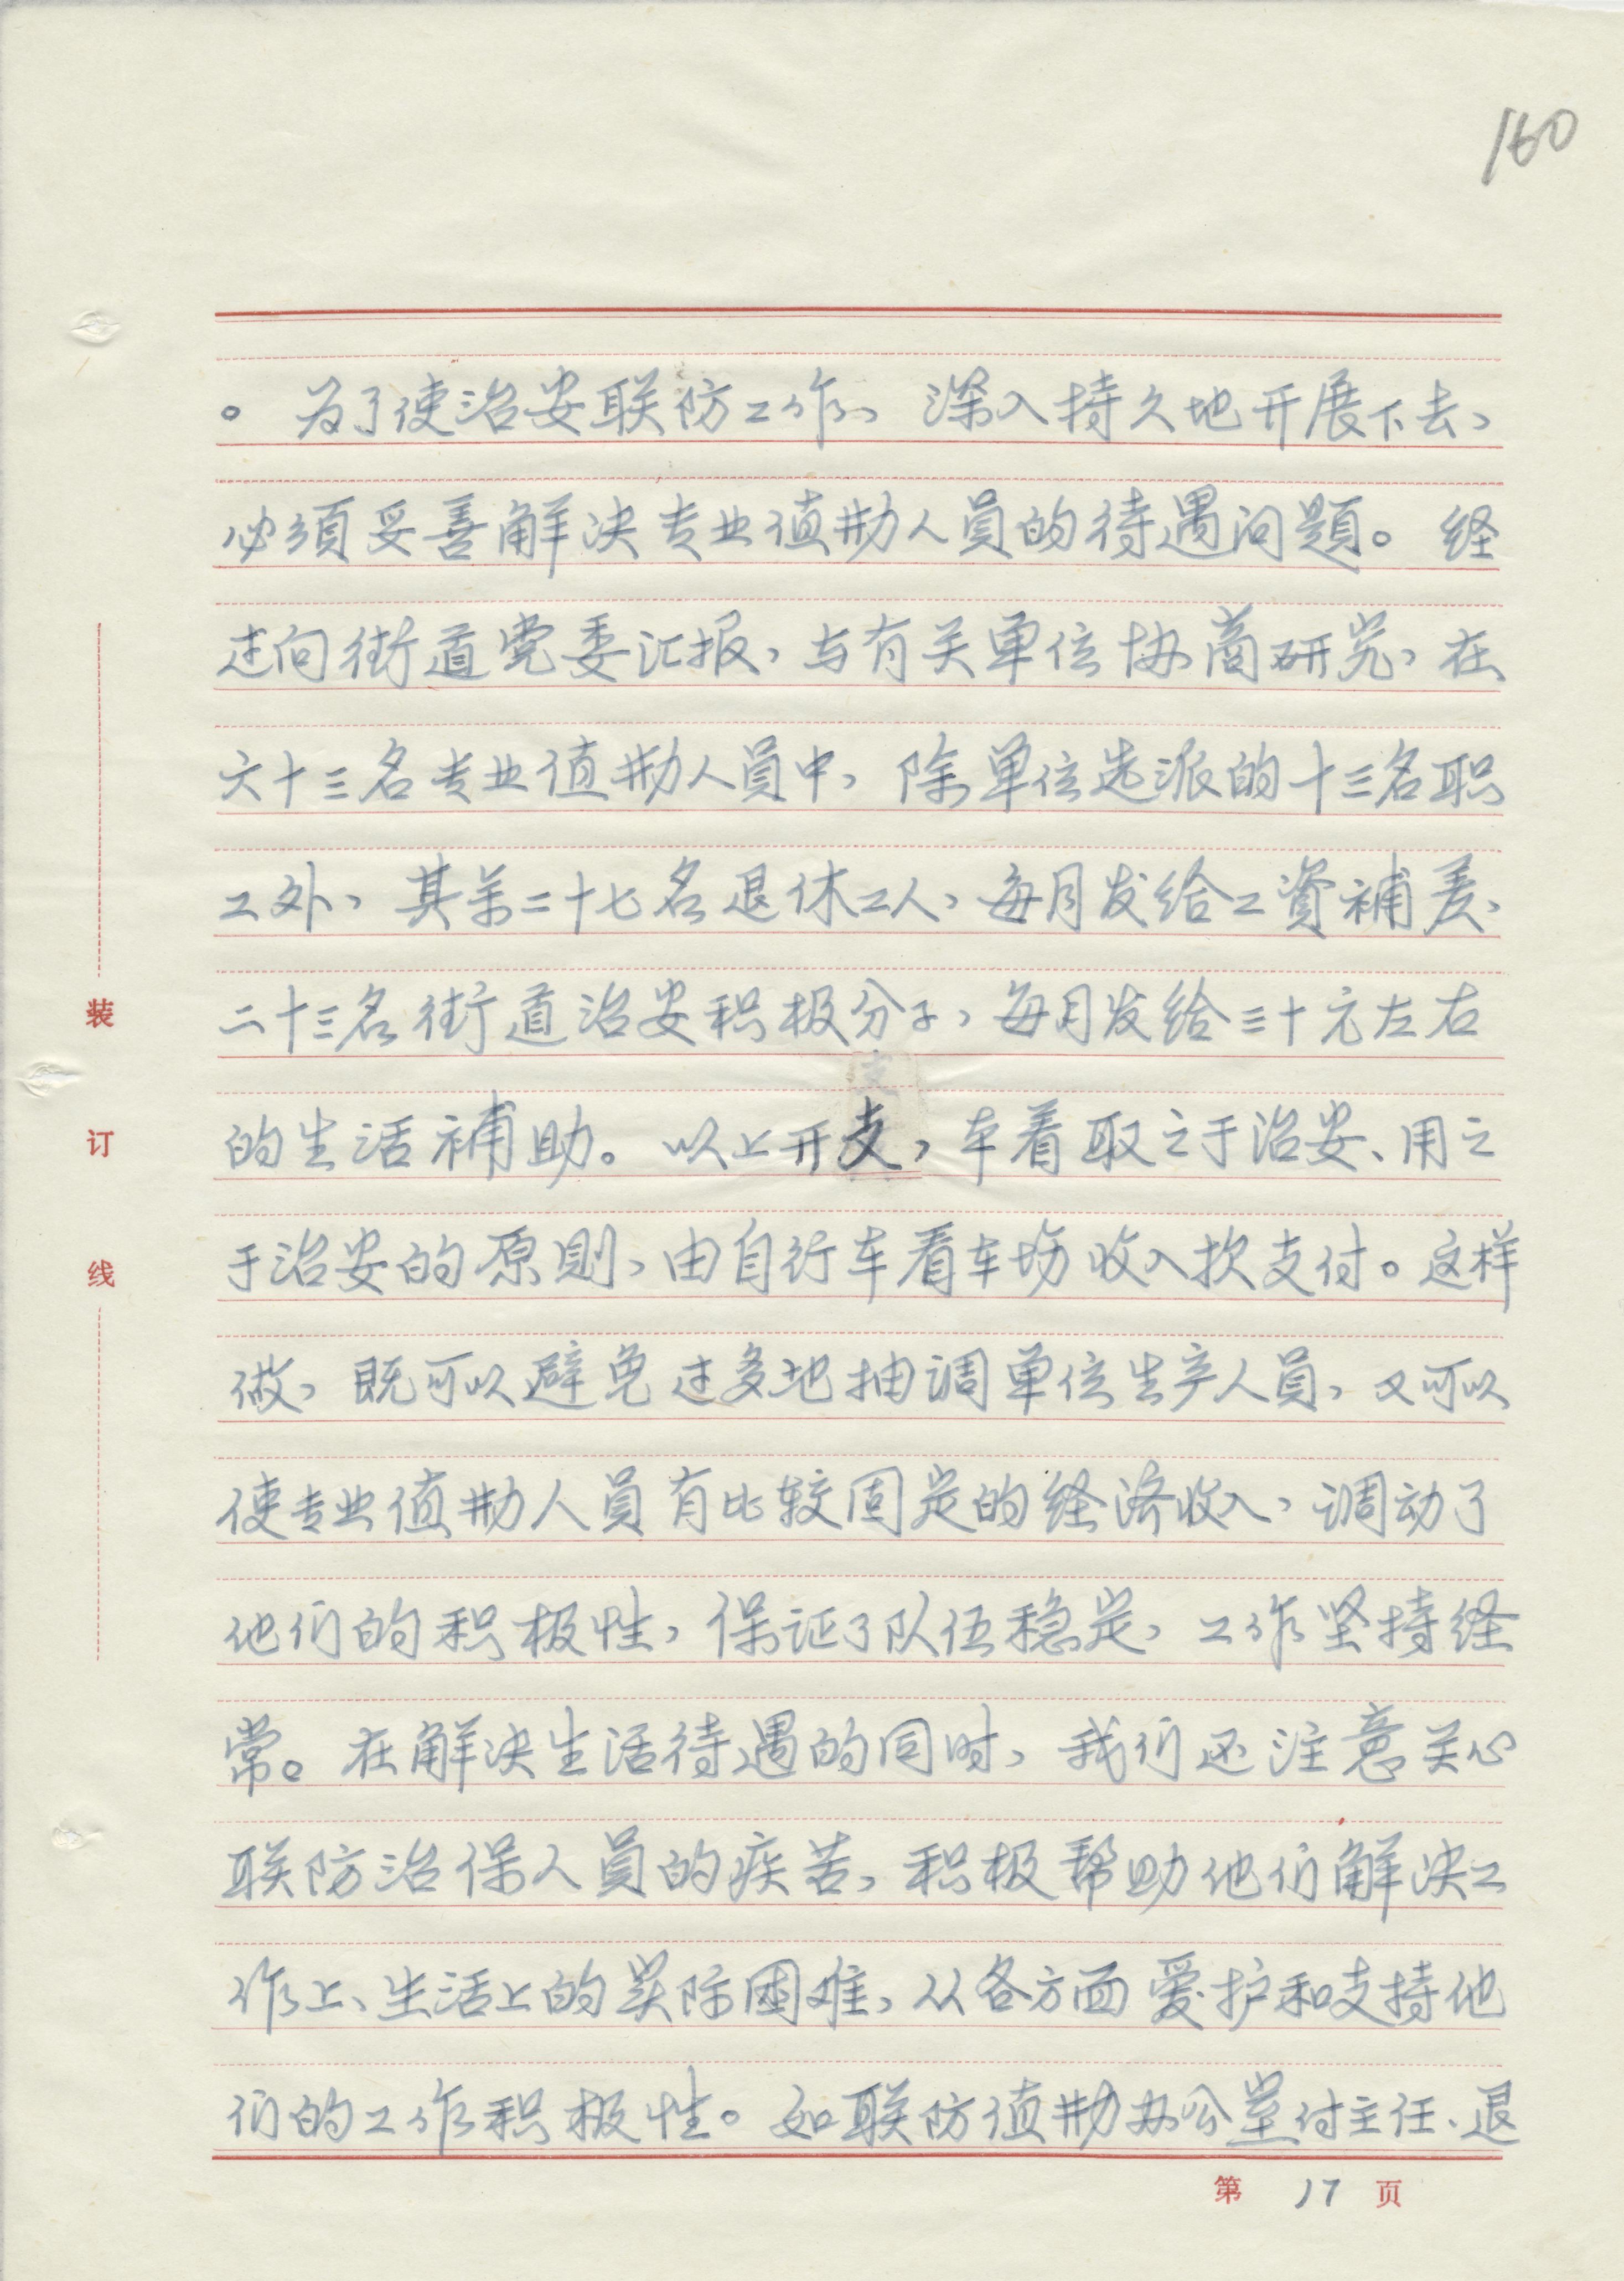 160
。为了使治安联防工作，深入持久地开展下去，
必须妥善解决专业值勤人员的待遇问题。经
过向街道党委汇报，与有关单位协商研究，在
六十三名专业值勤人员中，除单位选派的十三名职
工外，其余二十七名退休工人，每月发给工資補差、
二十三名街道治安积极分子，每月发给三十元左右
的生活補助。以上开支，本着取之于治安、用之
于治安的原则，由自行车看车场收入款支付。这样
做，既可以避免过多地抽调单位生产人员，又可以
使专业值勤人员有比较固定的经济收入，调动了
他们的积极性，保证了队伍稳定，工作坚持经
常。在解决生活待遇的同时，我们还注意关心
联防治保人员的疾苦，积极帮助他们解决工
作上、生活上的实际困难，从各方面爱护和支持他
们的工作积极性。如联防值勤办公室付主任、退
装
订
线
第 17 页